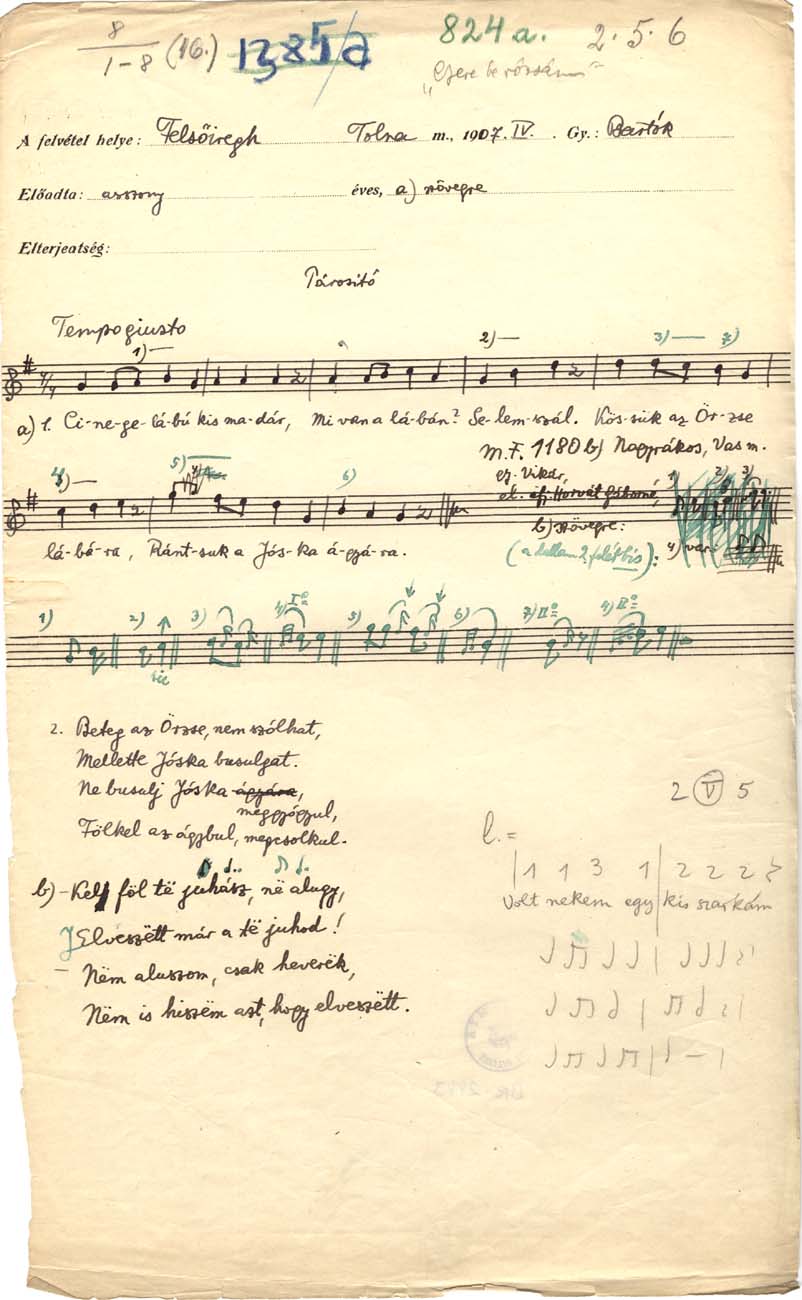 8
1-8 (16.) 1385/a 824 a. 2. 5. 6
A felvétel helye: Felsőiregh Tolna m., 1907. IV. Gy.: Bartók
Előadta: asszony éves, a) szövegre
Elterjedtség:
Párosító
Tempo giusto
1) 2) 3) 7)
a) 1. Ci-ne-ge-lá-bú kis ma-dár, Mi van a lá-bán? Se-lem-szál. Kös-sük az Ör-zse
M.F. 1180 b) Nagyrákos, Vas m.
gy. Vikár,
5) 6) 1) 2) 3)
b) szövegre:
lá-bá-ra, Ránt-suk a Jós-ka á-gyá-ra. (a dallam 2. felét bis): 4) var.
1) 2) 3) 4) I° 5) 6) 7) II° 4) II°
sic
2. Beteg az Örzse, nem szólhat,
Mellette Jóska busulgat.
Ne busulj Jóska ágyára,
meggyógyul,
Fölkel az ágybul, megcsolkul.
2 V 5
l. =
1 1 3 1 2 2 2
Volt nekem egy kis szarkám
b) - Kelj föl të juhász, në alugy,
Elveszëtt már a të juhod!
- Nëm aluszom, csak heverëk,
Nëm is hiszëm azt, hogy elveszëtt.